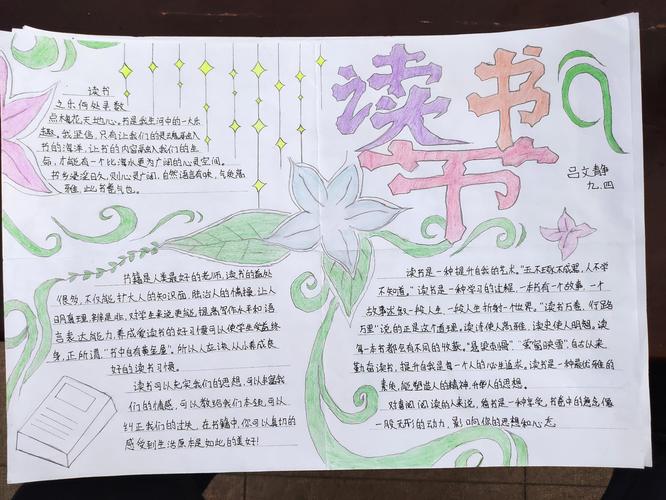 读书节
吕文静
九.四
读书
之乐何处寻数
点梅花天地心。书是我生河中的一大乐
趣。我坚信,只有让我们的灵魂融入
书的海洋,让书的内容融入我们的生
命,才能有一个比海水更为广阔的心灵空间。
书乡浸淀日久,则心灵广阔,自然语言有味,气处高
雅,此书卷气也。
书籍是人类最好的老师,读书的益处
很多,不仅能扩大人的知识面,陶冶人的情操,让人
明真理,辩是非,对学生来说更能提高写作水平和语
言表达能力,养成爱读书的好习惯可以使学生受益终
身,正所谓,"书中自有黄金屋"。所以人应该从小养成良
好的读书习惯。
读书可以充实我们的思想,可以丰富我
们的情感,可以教给我们本领,可以
纠正我们的过失,在书籍中,你可以真切的
感受到生活原本是如此的美好!
读书是一种提升自我的艺术。"玉不琢不成器,人不学
不知道。"读书是一种学习的过程。一本书有一个故事,一个
故事述叙一段人生,一段人生折射一个世界。"读书万卷,行路
万里"说的正是这个道理。读诗使人高雅,读史使人明智。读
每一本书都会有不同的收获。"悬梁刺股""萤窗映雪"自古以来
勤奋读书,提升自我是每一个人的毕生追求。读书是一种最优雅的
素质,能塑造人的精神,升华人的思想。
对喜阅阅读的人来说,看书是一种享受。书卷中的意念像
一股无形的动力,影响你的思想和心态。